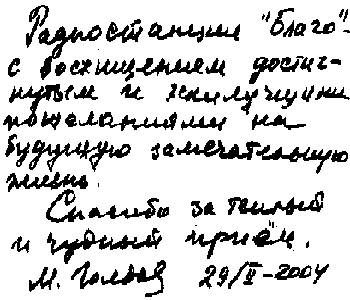 Радиостанции "Благо"-
с восхищением достиг-
нутым и наилучшими
пожеланиями на
будущую замечательную
жизнь.
Спасибо за теплый
и чудный приём.
М. 29/II-2004